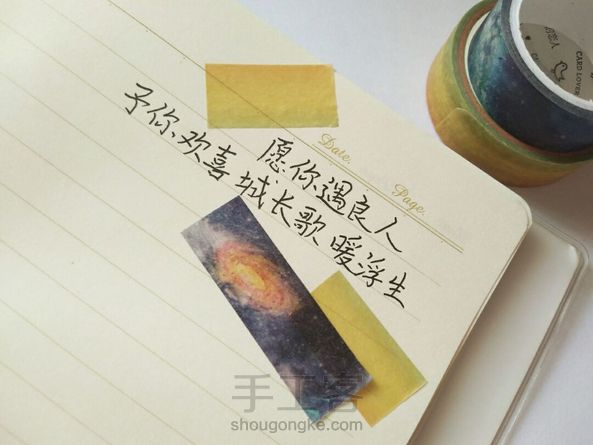 愿你遇良人
予你欢喜城长歌暖浮生
Date.
Page.
CARD LOVER
手工客
shougongke.com